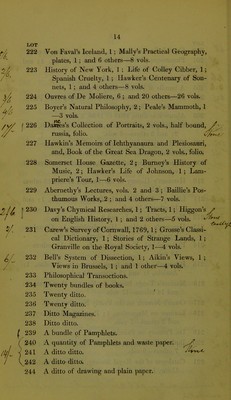 14
LOT
222 Von Faval's Iceland, 1; Mally's Practical Geography,
plates, 1; and 6 others—8 vols.
223 History of New York, 1; Life of Colley Cibber, 1;
Spanish Cruelty, 1; Hawker's Centenary of Son-
nets, 1; and 4 others—8 vols.
224 Ouvres of De Moliere, 6; and 20 others—26 vols.
225 Boyer's Natural Philosophy, 2; Peale's Mammoth, 1
—3 vols.
226 Collection of Portraits, 2 vols., half bound,
russia, folio.
227 Hawkin's Memoirs of Ichthyasaura and Plesiosauri,
and, Book of the Great Sea Dragon, 2 vols., folio.
228 Somerset House Gazette, 2; Burney's History of
Music, 2; Hawker's Life of Johnson, 1; Lam-
priere's Tour, 1—6 vols.
229 Abernethy's Lectures, vols. 2 and 3; Baillie's Pos-
thumous Works, 2; and 4 others—7 vols.
230 Davy's Chymical Researches, 1; Tracts, 1; Higgon's
on English History, 1; and 2 others—5 vols.
231 Carew's Survey of Cornwall, 1769, 1; Grosse's Classi-
cal Dictionary, 1; Stories of Strange Lands, 1;
Granville on the Royal Society, 1—4 vols.
232 Bell's System of Dissection, 1; Aikin's Views, 1;
Views in Brussels, 1; and 1 other—4 vols.
233 Philosophical Transactions.
234 Twenty bundles of books.
235 Twenty ditto.
236 Twenty ditto.
237 Ditto Magazines.
238 Ditto ditto.
239 A bundle of Pamphlets.
240 A quantity of Pamphlets and waste paper.
241 A ditto ditto.
242 A ditto ditto.
244 A ditto of drawing and plain paper.